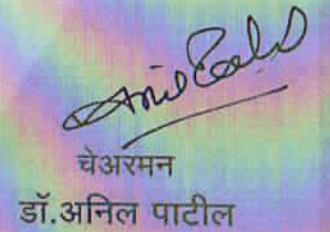 Anil Patil
चेअरमन
डॉ.अनिल पाटील